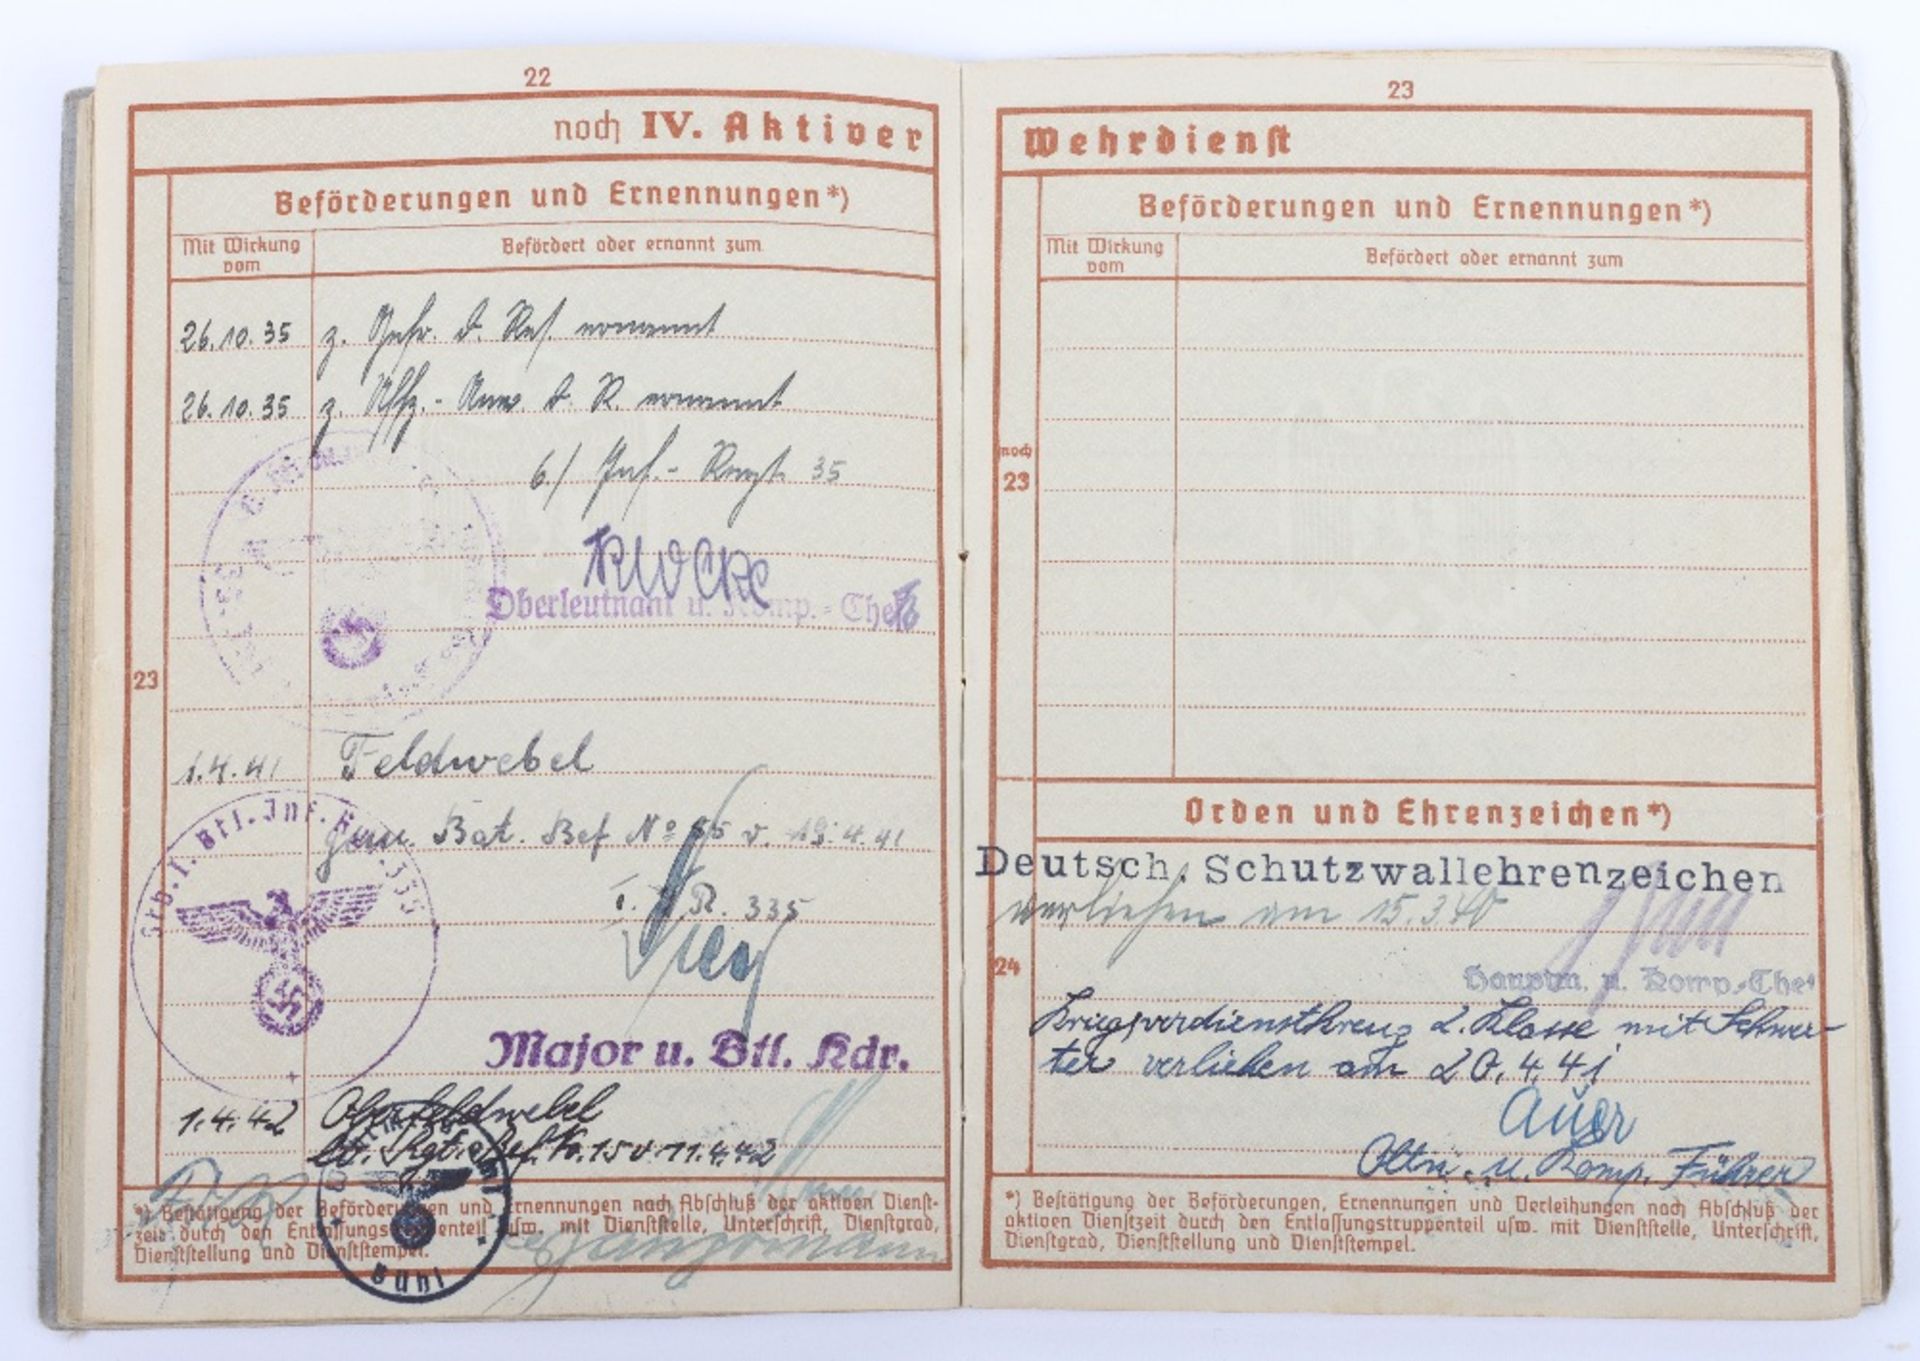 22
noch IV. Aktiver
Beförderungen und Ernennungen*)
Mit Wirkung vom
Befördert oder ernannt zum
26.10.35 z. Gefr. d. Res. ernannt
26.10.35 z. Uffz.-Anw. d. R. ernannt
6./ Inf.-Regt. 35
Klocke
Oberleutnant u. Komp.-Chef
23
1.4.41 Feldwebel
gem. Bat. Bef No 85 v. 19.4.41
I. J.R. 335
Major u. Btl. Kdr.
1.4.42 Oberfeldwebel
lt. Rgt. Bef. Nr. 15 v 11.4.42
Bühl
*) Bestätigung der Beförderungen und Ernennungen nach Abschluß der aktiven Dienst-
zeit durch den Entlassungstruppenteil usw. mit Dienststelle, Unterschrift, Dienstgrad,
Dienststellung und Dienststempel.
23
Wehrdienst
Beförderungen und Ernennungen*)
Mit Wirkung vom
Befördert oder ernannt zum
noch
23
Orden und Ehrenzeichen*)
Deutsch. Schutzwallehrenzeichen
verliehen am 15.3.40
24
Hauptm. u. Komp.-Chef
Kriegsverdienstkreuz 2. Klasse mit Schwer-
ter verliehen am 20.4.41
Auer
Oltn. u. Komp. Führer
*) Bestätigung der Beförderungen, Ernennungen und Verleihungen nach Abschluß der
aktiven Dienstzeit durch den Entlassungstruppenteil usw. mit Dienststelle, Unterschrift,
Dienstgrad, Dienststellung und Dienststempel.